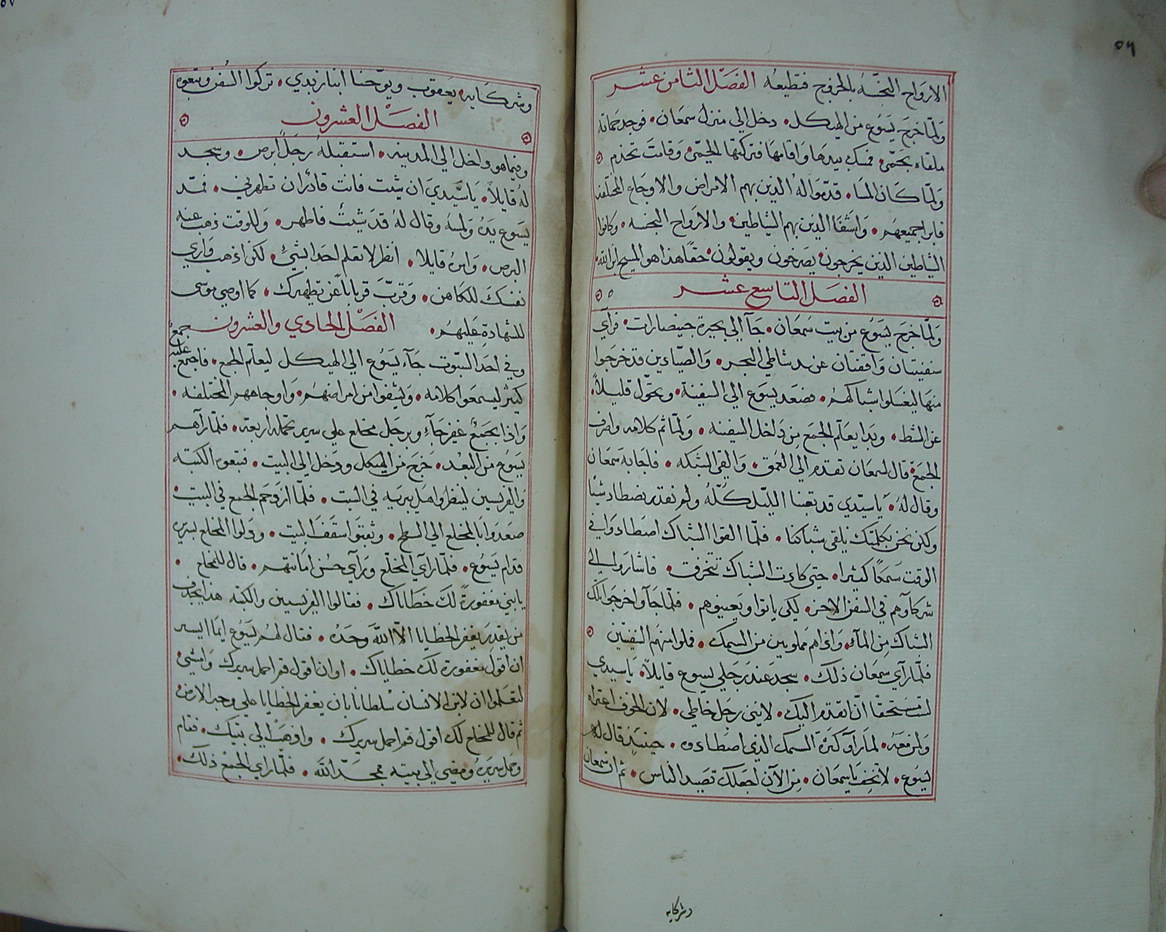 ٥٦
الارواح النجسه بالخروج فتطيعه الفصل الثامن عشر
ولما خرج يسوع من الهيكل. دخل الي منزل سمعان. فوجد حماته
ملقاه بحمي. فمسك بيدها واقامها فتركتها الحمي. وقامت تخدم
ولما كان المسا. قدموا له الذين بهم الامراض والاوجاع المختلفه
فابرا جميعهم. واشفا الذين بهم الشياطين. والارواح النجسه. وكانوا
الشياطين الذين يخرجون يصرخون ويقولون. حقا هذا هو المسيح ابن الله.
الفصل التاسع عشر
ولما خرج يسوع من بيت سمعان. جآ الي بحيرة جينصارات. فراي
سفينتان واقفتان عن جد شاطي البحر. والصيادين قد خرجوا
منها ليغسلوا شباكهم. فصعد يسوع الي السفينة. وتحول قليلاً.
عن الشط. وبدا يعلم الجمع من داخل السفينه. ولما تم كلامه واصرف
الجمع. قال لسمعان تقدم الي العمق. والقي الشبكه. فاجابه سمعان
وقال له. يا سيدي قد تعبنا الليل كله ولم نقدر نصطاد شيئا
ولكن نحن بكلمتك نلقي شباكنا. فلما القوا الشباك اصطادوا في
الوقت سمكا كثيرا. حتي كادت الشباك تتخرق. فاشاروا الي
شركاوهم في السفن الاخر. لكي ياتوا ويعينوهم. فلما جآوا خرجوا تلك
الشباك من المآء. واذاهم مملويين من السمك. فملوا منهم السفينتين
فلما راي سمعان ذلك. سجد عند رجلي يسوع قايلاً. يا سيدي
لست مستحقا ان اتقدم اليك. لانني رجل خاطي. لان الخوف اعتراه
ولمن معه. لما راو كثرة السمك الذي اصطادوه. حينيذ قال له
يسوع. لا تخف يا سمعان. من الآن اجعلك تصيد الناس. ثم ان سمعان
وشركايه
وشركايه. يعقوب ويوحنا ابنا زبدي. تركوا السفن وتبعوه
الفصل العشرون
وفيما هو داخل الي المدينه. استقبله رجل ابرص. وسجد
له قايلاً. يا سيدي ان شيت فانت قادر ان تطهرني. فمد
يسوع يده ولمسه وقال له قد شيت فاطهر. وللوقت ذهب عنه
البرص. وامره قايلا. انظر لا تعلم احدا بشي. لكن اذهب فاري
نفسك للكاهن. وقرب قربانا عن تطهيرك. كما اوصي موسي
للشهادة عليهم. الفصل الحادي والعشرون
وفي احد السبوت جآء يسوع الي الهيكل ليعلم الجمع. فاجتمع عليه جمع
كثير ليسمعوا كلامه. وليشفوا من امراضهم. واوجاعهم المختلفه.
واذا بجمع غفير جآء وبرجل مخلع علي سرير تحمله اربعه. فلما رآهم
يسوع من البعد. خرج من الهيكل ودخل الي البيت. فتبعوه الكتبه
والفريسين لينظروا ما يريد في البيت. فلما ازدحم الجمع في البيت.
صعدوا بالمخلع الي السطح. وثقبوا سقف البيت. ودلوا المخلع بسريره
قدام يسوع. فلما راي المخلع وراي حسن امانتهم. قال للمخلع.
يا بني مغفورة لك خطاياك. فقالوا الفريسين والكتبه هذا يجدف
من يقدر يغفر الخطايا الا الله وحده. فقال لهم يسوع ايما ايسر
ان اقول مغفورة لك خطاياك. او ان اقول قم احمل سريرك وامشي
لتعلموا ان لابن الانسان سلطانا بان يغفر الخطايا علي وجه الارض
ثم قال للمخلع لك اقول قم احمل سريرك. واذهب الي بيتك. فقام
وحمل سريره ومضي الي بيته ممجد الله. فلما راي الجمع ذلك.